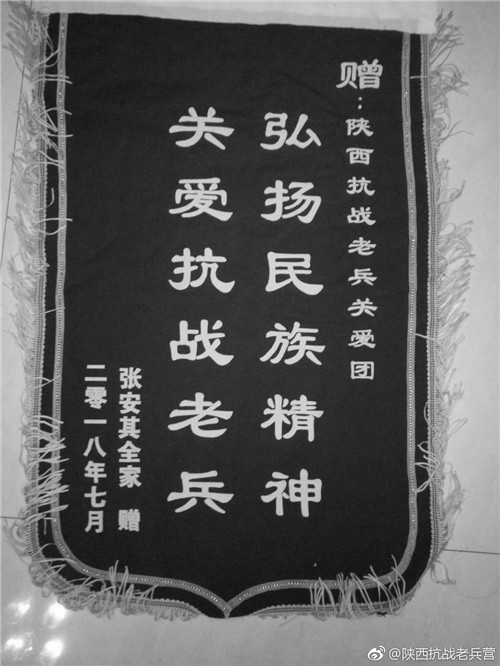 赠：陕西抗战老兵关爱团
弘扬民族精神
关爱抗战老兵
张安其全家 赠
二零一八年七月
@陕西抗战老兵营